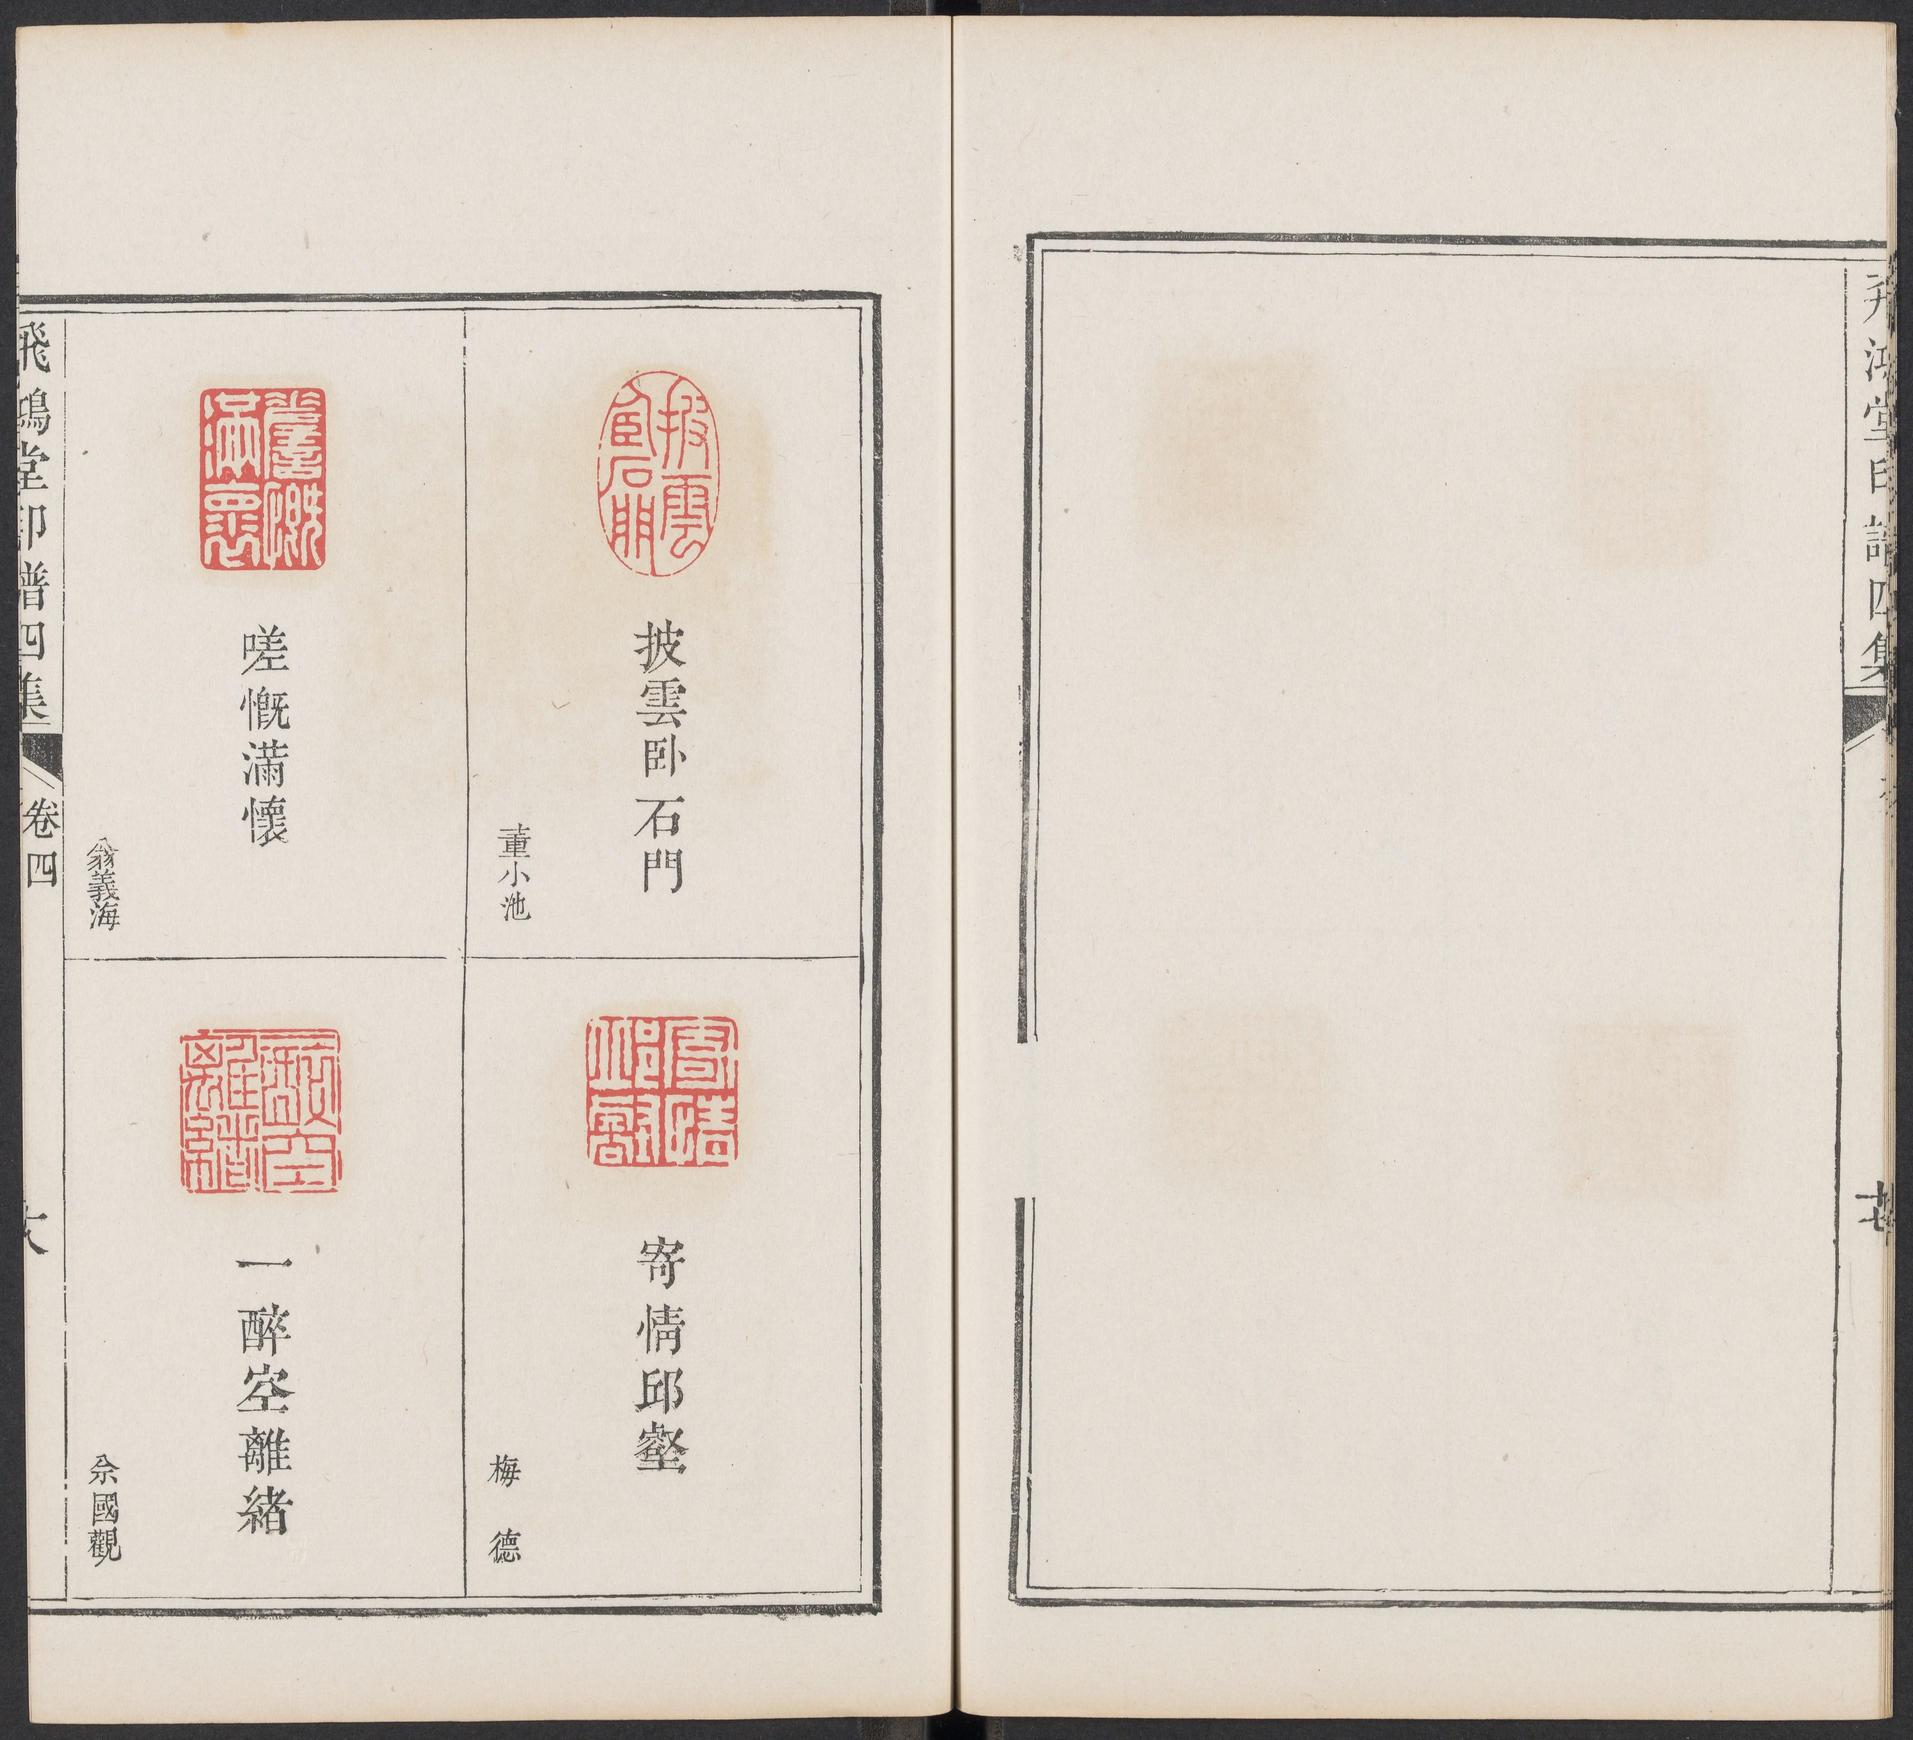 飛鴻堂印譜四集
披雲臥石門
董小池
寄情邱壑
梅德
嗟慨滿懷
翁義海
一醉空離緒
佘國觀
飛鴻堂印譜四集
卷四